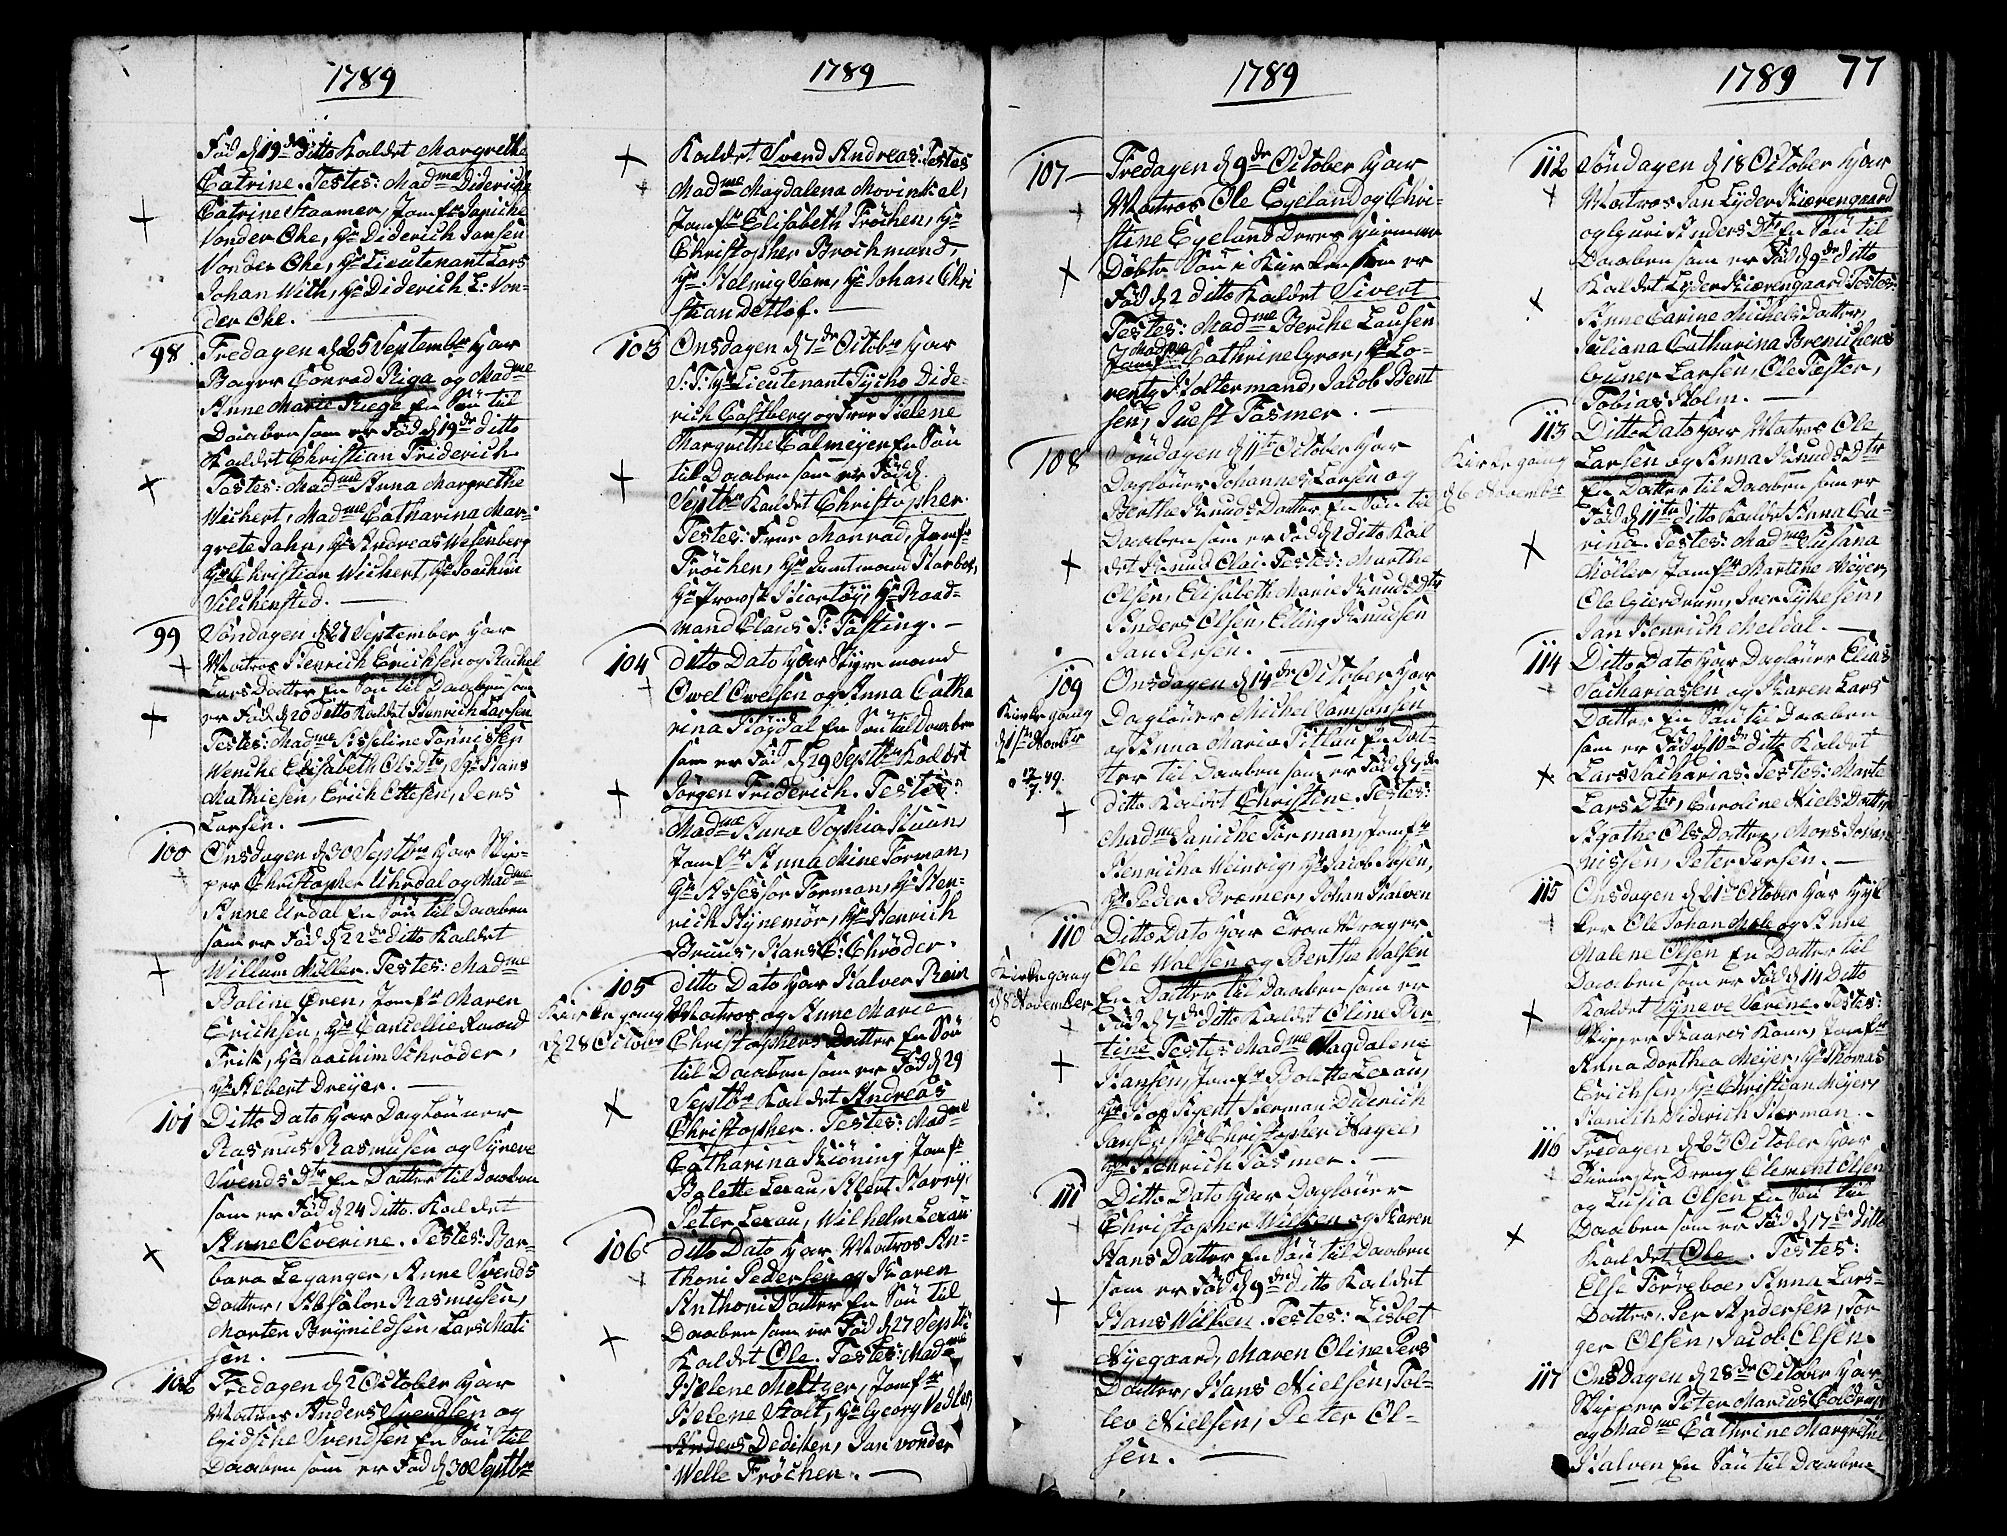 1789
Fød d 19de ditto Kaldet Margrethe
Catrine. Testes: Madme Diderich
Catrine Staamer, Jomfr Janiche
Vonder Ohe, Hr Diderich Jansen
Vonder Ohe, Hr Lieutenant Lars
Johan With, Hr Diderich L: Von-
der Ohe.
98. Fredagen d 25 Septembr har
Bager Conrad Riga og Madme
Anne Marie Riege En Søn til
Daaben som er Fød d 19de ditto
Kaldet Christian Friderich
Testes: Madme Anna Margrethe
Wichert, Madme Catharina Mar-
grete Jahn, Hr Andreas Wesenberg
Hr Christian Wichert, Hr Joachim
Vilchensted.
99 Søndagen d 27 September har
Matros Henrich Erichsen og Rachel
Lars Datter En Søn til Daaben som
er Fød d 20 ditto Kaldet Henrich Larsen
Testes: Madme Asseline Tønnissen
Wenche Elisabeth Ols Dtr, Hr Hans
Mathiesen, Erich Ottesen, Jens
Larsen.
100 Onsdagen d 30 Septbr har Skip-
per Christopher Uhrdal og Madme
Anne Urdal En Søn til Daaben
som er Fød d 22de ditto Kaldet
Willum Møller. Testes: Madme
Boline Ören, Jomfr Maren
Erichsen, Hr Cancellie Raad
Friis, Hr Joachim Schrøder,
Hr Albert Dreyer.
101 Ditto Dato har Dagløuner
Rasmus Rasmusen og Syneve
Svends Dtr En Datter til Daaben
som er Fød d 24 ditto. Kaldet
Anne Severine. Testes: Bar-
bara Leganger, Anne Svends
Datter, Absalon Rasmusen,
Morten Brynildsen, Lars Mati
sen.
102 Fredagen d 2 October har
Matros Anders Svendsen og
Gidsche Svendsen En Søn til
Daaben som er Fød d 30 Septbr
1789
Kaldet Svend Andreas. Testes
Madme Magdalena Movinkel,
Jomfr Elisabeth Frøchen, Hr
Christopher Brochmand,
Hr Helmig Sem, Hr Johan Chri
stian Detlof.
103 Onsdagen d 7de Octobr har
S: T: Hr Lieutenant Tycho Dide-
rich Castberg og Frue Helene
Margrethe Calmeyer En Søn
til Daaben som er Fød d
Septbr Kaldet Christopher.
Testes: Frue Monrad, Jomfr
Frøchen, Hr Justmand Korbøe,
Hr Provst Hiortøy, Hr Raad-
mand Claus F: Fasting.
104 ditto Dato har Styrmand
Owel Owelsen og Anna Catha
rina Høydal En Søn til daaben
som er Fød d 29 Septbr Kaldet
Jørgen Friderich. Testes:
Madme Anna Sophia Kuun,
Jomfr Anna Mine Forman,
Hr Assessor Forman, Hr Hen-
rich Stynemør, Hr Henrich
Bruus, Hans C: Schrøder.
105 ditto Dato har Halver Rein
Kirkegang Matros og Anne Marie
d 28 Octobr Christophers Datter En Søn
til Daaben som er Fød d 29
Septbr Kaldet Andreas
Christopher. Testes: Madme
Catharina Kiøning, Jomfr
Bolette Lexau, Albert Harry,
Peter Lexau, Wilhelm Lexau
106 ditto Dato har Matros An-
thoni Pedersen og Karen
Anthoni Datter En Søn til
Daaben som er Fød d 27 Septbr
Kaldet Ole. Testes: Madme
Helene Meltzer, Jomfr
Helene Holt, Hr Georg Vedeler,
Anders Dedichen, Jan vonder
Welle Frøchen.
1789
107 Fredagen d 9de October har
Matros Ole Eyeland og Chri-
stine Eyeland Deres hiemme
Døbte Søn i Kirken som er
Fød d 2 ditto Kaldet Sivert
Testes: Madme Berthe Lausen
Madme Cathrine Gran, Hr Lo-
rentz Holtermand, Jacob Bent
sen, Juest Fasmer.
108 Søndagen d 11te October har
Dagløuer Johannes Larsen og
Berthe Knuds Datter En Søn til
Daaben som er Fød d 2 ditto Kal
det Knud Olai. Testes: Marthe
Olsen, Elisabeth Marie Knuds Dtr
Anders Olsen, Elling Knudsen
Jan Persen.
109 Onsdagen d 14de October har
Kirkegang Dagløuer Michel Samsonsen
d 1ste Novbr og Anna Maria Titlau En Dat-
ter til Daaben som er Fød d 7de
ditto Kaldet Christine. Testes:
Madme Janiche Forman, Jomfr
Henricha Meinvig, Hr Jacob Ipsen,
Hr Peder Bræmer, Johan Halven
110 Ditto Dato har Tran Vrager
Ole Walsen og Berthe Walsen
Kirkegang En Datter til Daaben som er
d 8 November Fød d 7de ditto Kaldet Oline Per-
tine. Testes Madme Magdalene
Hansen, Jomfr Bolette Lexau,
Hr Hof Agent Herman Diderich
Jansen, Hr Christopher Kahrs,
Hr Henrich Fasmer.
111 Ditto Dato har Dagløuer
Christopher Wilken og Karen
Hans Datter En Søn til Daaben
som er Fød d 9de ditto Kaldet
Hans Wilken. Testes: Lisbet
Nyegaard, Maren Oline Pers
Datter, Hans Nielsen, Tol-
lev Nielsen, Peter Ol-
sen.
1789 77
112 Søndagen d 18 October har
Matros Jan Lyder Kierengaard
og Guri Anders Dtr En Søn til
Daaben som er Fød d 9de ditto
Kaldet Lyder Kierengaard Testes:
Anne Carine Michels Datter,
Juliana Catharina Bremichens
Guner Larsen, Ole Foster,
Tobias Holm.
113 Ditto Dato har Matros Ole
Kirkegang Larsen og Anna Knuds Dtr
d 6 Novembr En Datter til Daaben som er
Fød d 11te ditto Kaldet Anna Ca-
rina. Testes: Madme Susana
Møller, Jomfr Martine Meyer,
Ole Gierdrum, Iver Tykesen,
Jan Henrich Meldal.
114 Ditto Dato har Dagløuer Elias
Sachariassen og Karen Lars
Datter En Søn til Daaben
som er Fød d 10de ditto Kaldet
Lars Sacharias: Testes: Marte
Lars Dtr, Caroline Niels Datter
Agathe Ols Datter, Mons Johan
nissen, Peter Persen.
115 Onsdagen d 21de October har Kyk
ker Ole Johan Mohr og Anne
Malene Olsen En Datter til
Daaben som er Fød d 14 Ditto
Kaldet Syneve Serine. Testes:
Skipper Kaares Kone, Jomfr
Anna Dorthea Meyer, Hr Thomas
Erichsen, Hr Christian Meyer,
Hanich Diderich Herman.
116 Fredagen d 23 October har
Tieneste Dreng Clement Olsen
og Lusia Olsen En Søn til
Daaben som er Fød d 17de ditto
Kaldet Ole. Testes:
Else Førreboe, Anna Lars-
Datter, Per Andersen, Tor
ger Olsen, Jacob Olsen.
117 Onsdagen d 28de October har
Skipper Peter Marcus Coldevin
og Madme Cathrine Margrethe
Halven En Søn til Daaben